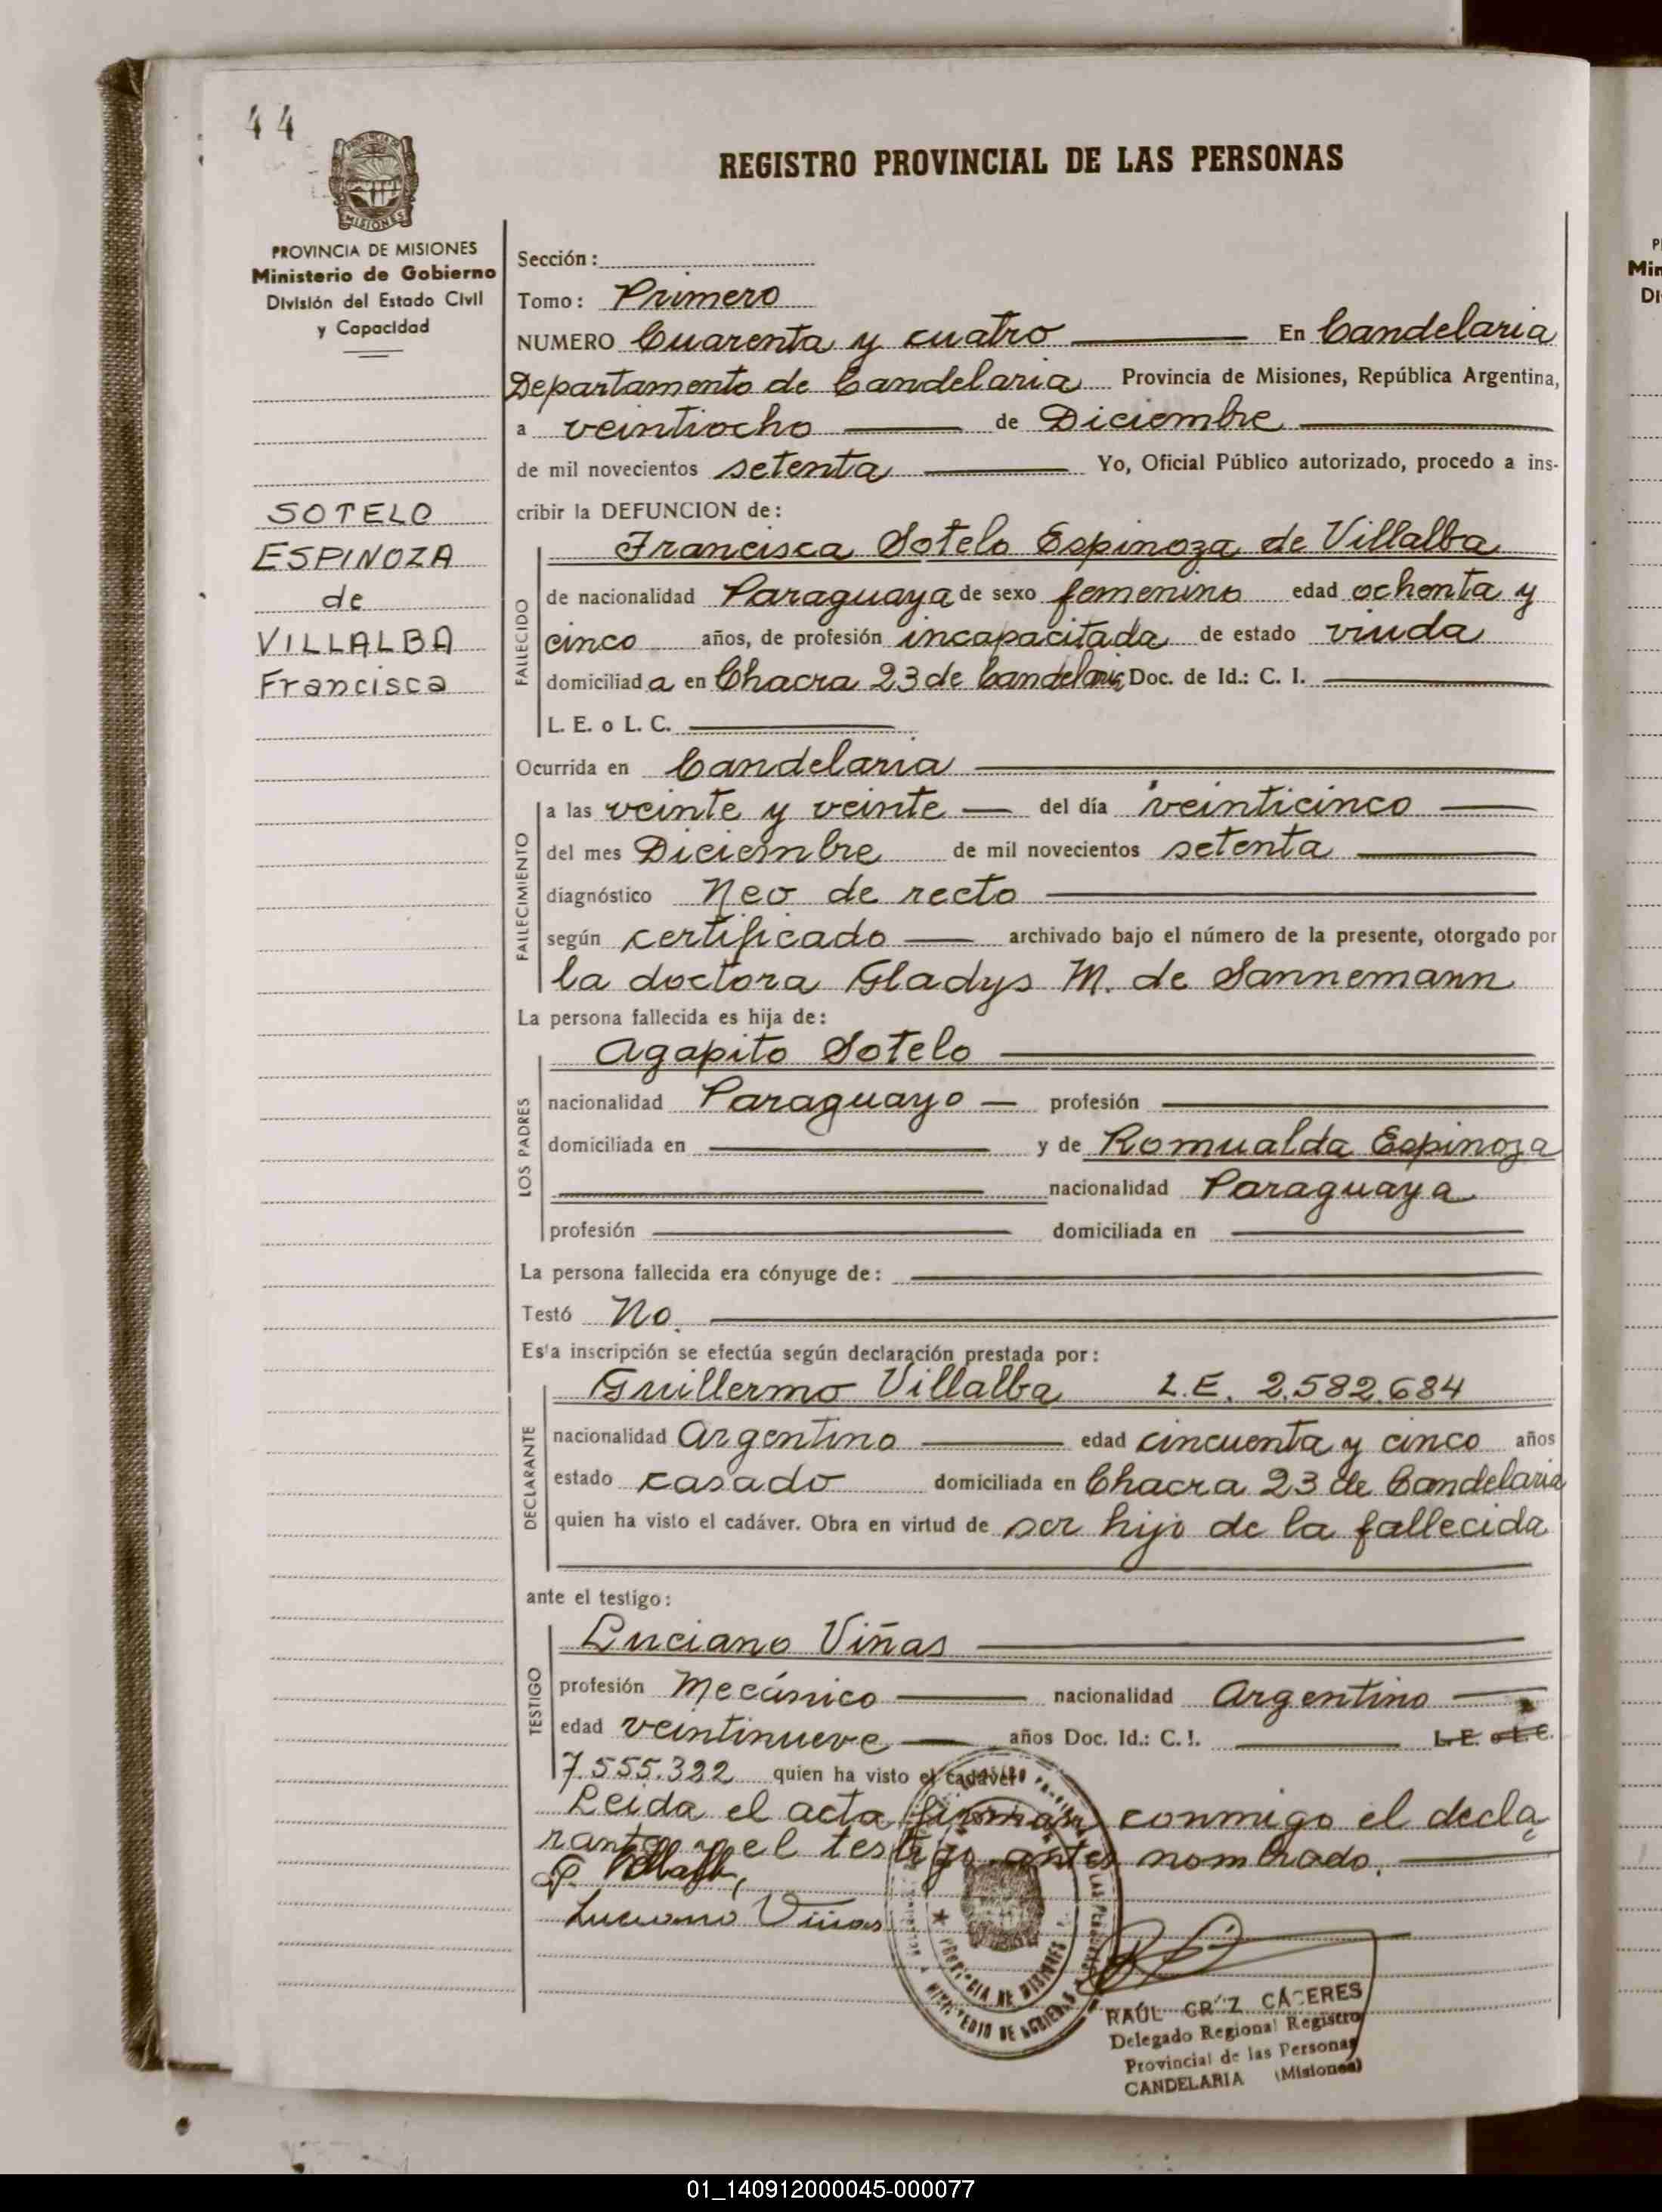 44
MISIONES
REGISTRO PROVINCIAL DE LAS PERSONAS
PROVINCIA DE MISIONES
Ministerio de Gobierno
División del Estado Civil
y Capacidad
SOTELO
ESPINOZA
de
VILLALBA
Francisca
Sección:
Tomo: Primero
NUMERO Cuarenta y cuatro En Candelaria
Departamento de Candelaria Provincia de Misiones, República Argentina,
a veintiocho de Diciembre
de mil novecientos setenta Yo, Oficial Público autorizado, procedo a ins-
cribir la DEFUNCION de:
Francisca Sotelo Espinoza de Villalba
FALLECIDO
de nacionalidad Paraguaya de sexo femenino edad ochenta y
cinco años, de profesión incapacitada de estado viuda
domiciliad a en Chacra 23 de Candelaria Doc. de Id.: C. I.
L. E. o L. C.
Ocurrida en Candelaria
FALLECIMIENTO
a las veinte y veinte del día veinticinco
del mes Diciembre de mil novecientos setenta
diagnóstico Neo de recto
según certificado archivado bajo el número de la presente, otorgado por
la doctora Gladys M. de Sannemann
La persona fallecida es hija de:
Agapito Sotelo
LOS PADRES
nacionalidad Paraguayo profesión
domiciliada en y de Romualda Espinoza
nacionalidad Paraguaya
profesión domiciliada en
La persona fallecida era cónyuge de:
Testó No.
Esta inscripción se efectúa según declaración prestada por:
Guillermo Villalba L.E. 2.582.684
DECLARANTE
nacionalidad Argentino edad cincuenta y cinco años
estado casado domiciliada en Chacra 23 de Candelaria
quien ha visto el cadáver. Obra en virtud de ser hijo de la fallecida
ante el testigo:
Luciano Viñas
TESTIGO
profesión Mecánico nacionalidad Argentino
edad veintinueve años Doc. Id.: C. I. L. E. o L C.
7.555.322 quien ha visto el cadáver
Leida el acta firman conmigo el decla
rante y el testigo antes nombrado.
Luciano Viñas
PROVINCIA DE MISIONES
RAÚL CRUZ CÁCERES
Delegado Regional Registro
Provincial de las Personas
CANDELARIA (Misiones)
P
Min
Di
01_140912000045-000077